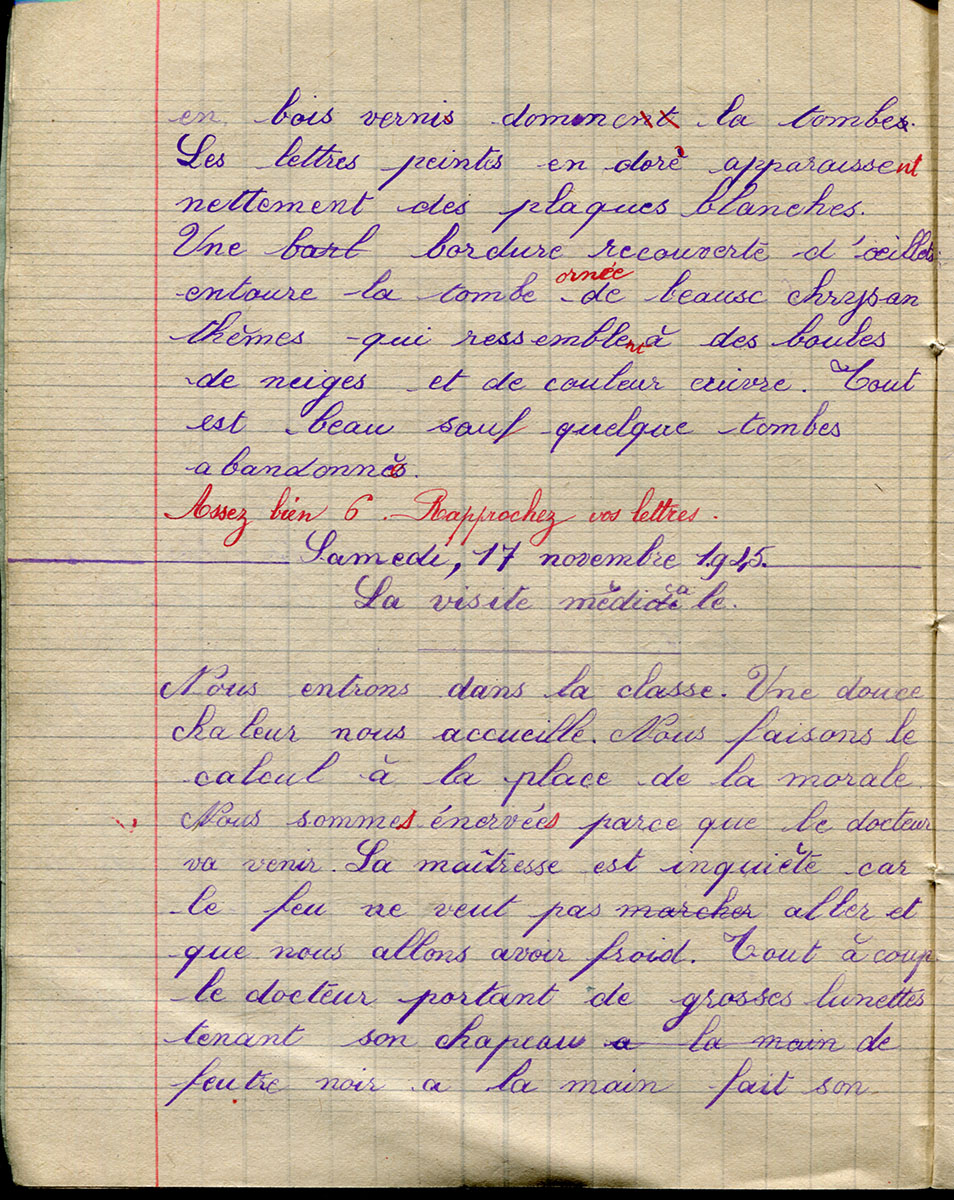 en bois vernis dominent la tombe.
Les lettres peintes en doré apparaissent
nettement des plaques blanches.
Une barl bordure recouverte d'œillets
ornée
entoure la tombe de beaux chrysan
thèmes qui ressemblent à des boules
de neiges et de couleur cuivre. Tout
est beau sauf quelque tombes
abandonnés.
Assez bien 6. Rapprochez vos lettres.
Samedi, 17 novembre 1945.
La visite médicale.
Nous entrons dans la classe. Une douce
chaleur nous accueille. Nous faisons le
calcul à la place de la morale.
Nous sommes énervées parce que le docteur
va venir. La maîtresse est inquiète car
le feu ne veut pas marcher aller et
que nous allons avoir froid. Tout à coup
le docteur portant de grosses lunettes
tenant son chapeau a la main de
feutre noir a la main fait son